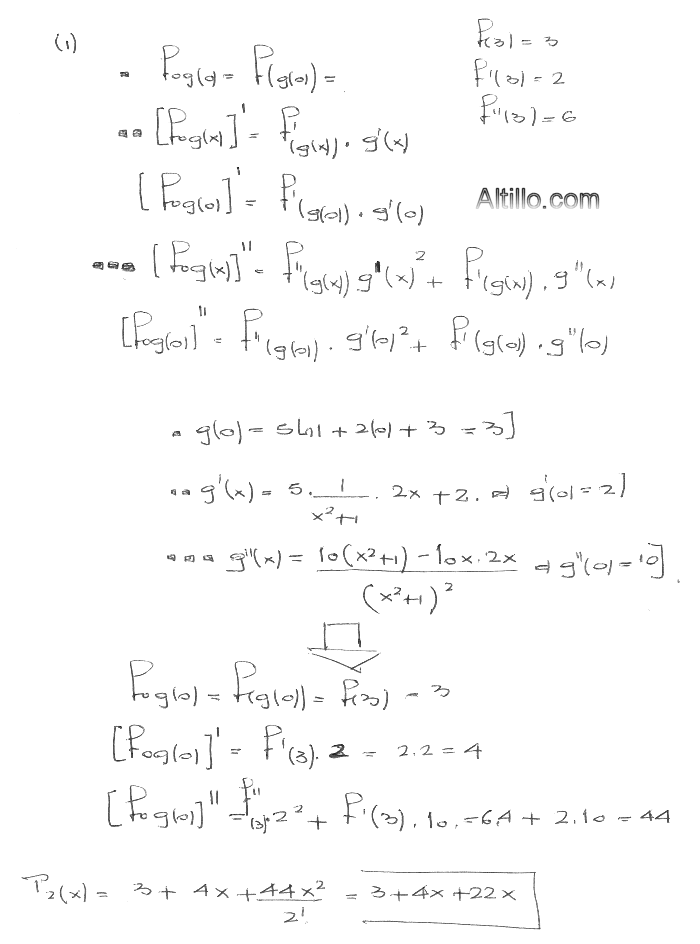 (1)
P(3) = 3
P'(3) = 2
P''(3) = 6
Pog(0) = P(g(0)) =
[Pog(x)]' = P'(g(x)) · g'(x)
[Pog(0)]' = P'(g(0)) · g'(0)
Altillo.com
[Pog(x)]'' = P''(g(x)) g'(x)² + P'(g(x)) · g''(x)
[Pog(0)]'' = P''(g(0)) · g'(0)² + P'(g(0)) · g''(0)
g(0) = 5Ln1 + 2(0) + 3 = 3]
g'(x) = 5 · 1/(x²+1) · 2x + 2 · ⇒ g'(0) = 2]
g''(x) = (10(x²+1) - 10x·2x)/(x²+1)² ⇒ g''(0) = 10]
Pog(0) = P(g(0)) = P(3) = 3
[Pog(0)]' = P'(3) · 2 = 2.2 = 4
[Pog(0)]'' = P''(3)·2² + P'(3) · 10 · = 6.4 + 2.10 = 44
P₂(x) = 3 + 4x + 44x²/2! = 3+4x+22x